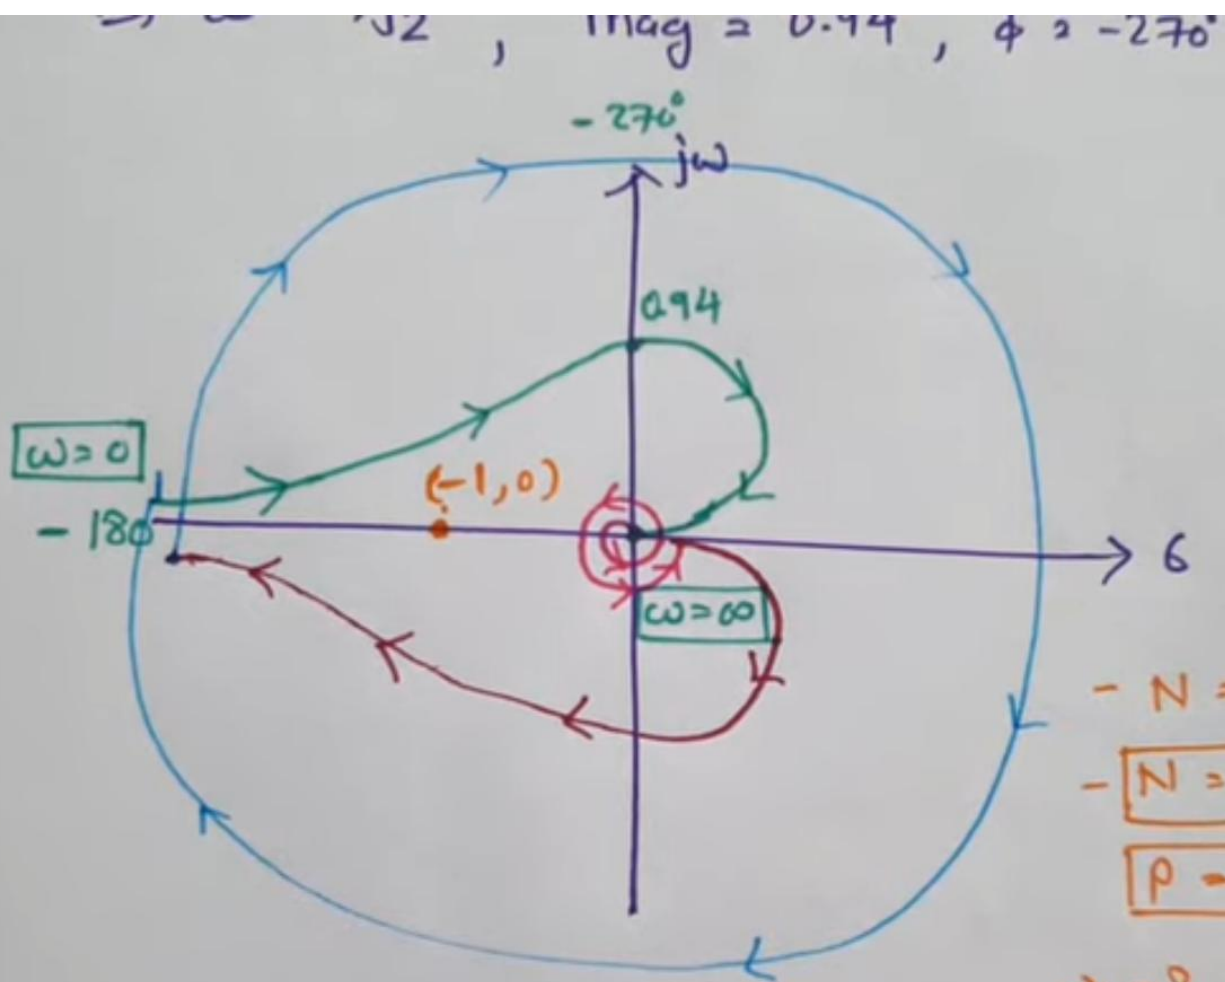 mag = 0.94 , φ = -270°
-270°
jω
0.94
ω=0
(-1,0)
-180
σ
ω=∞
- N =
- N =
P -